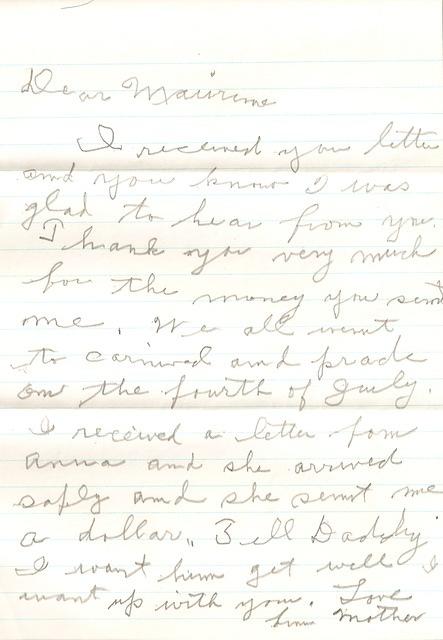 Dear Maurine
I received you letter
and you know I was
glad to hear from you.
Thank you very much
for the money you sent
me. We all went
to carnival and prade
on the fourth of July.
I received a letter fom
Anna and she arrived
safly and she sent me
a dollar. Tell Daddy
I want him get well I
want up with you. Love
from Mother